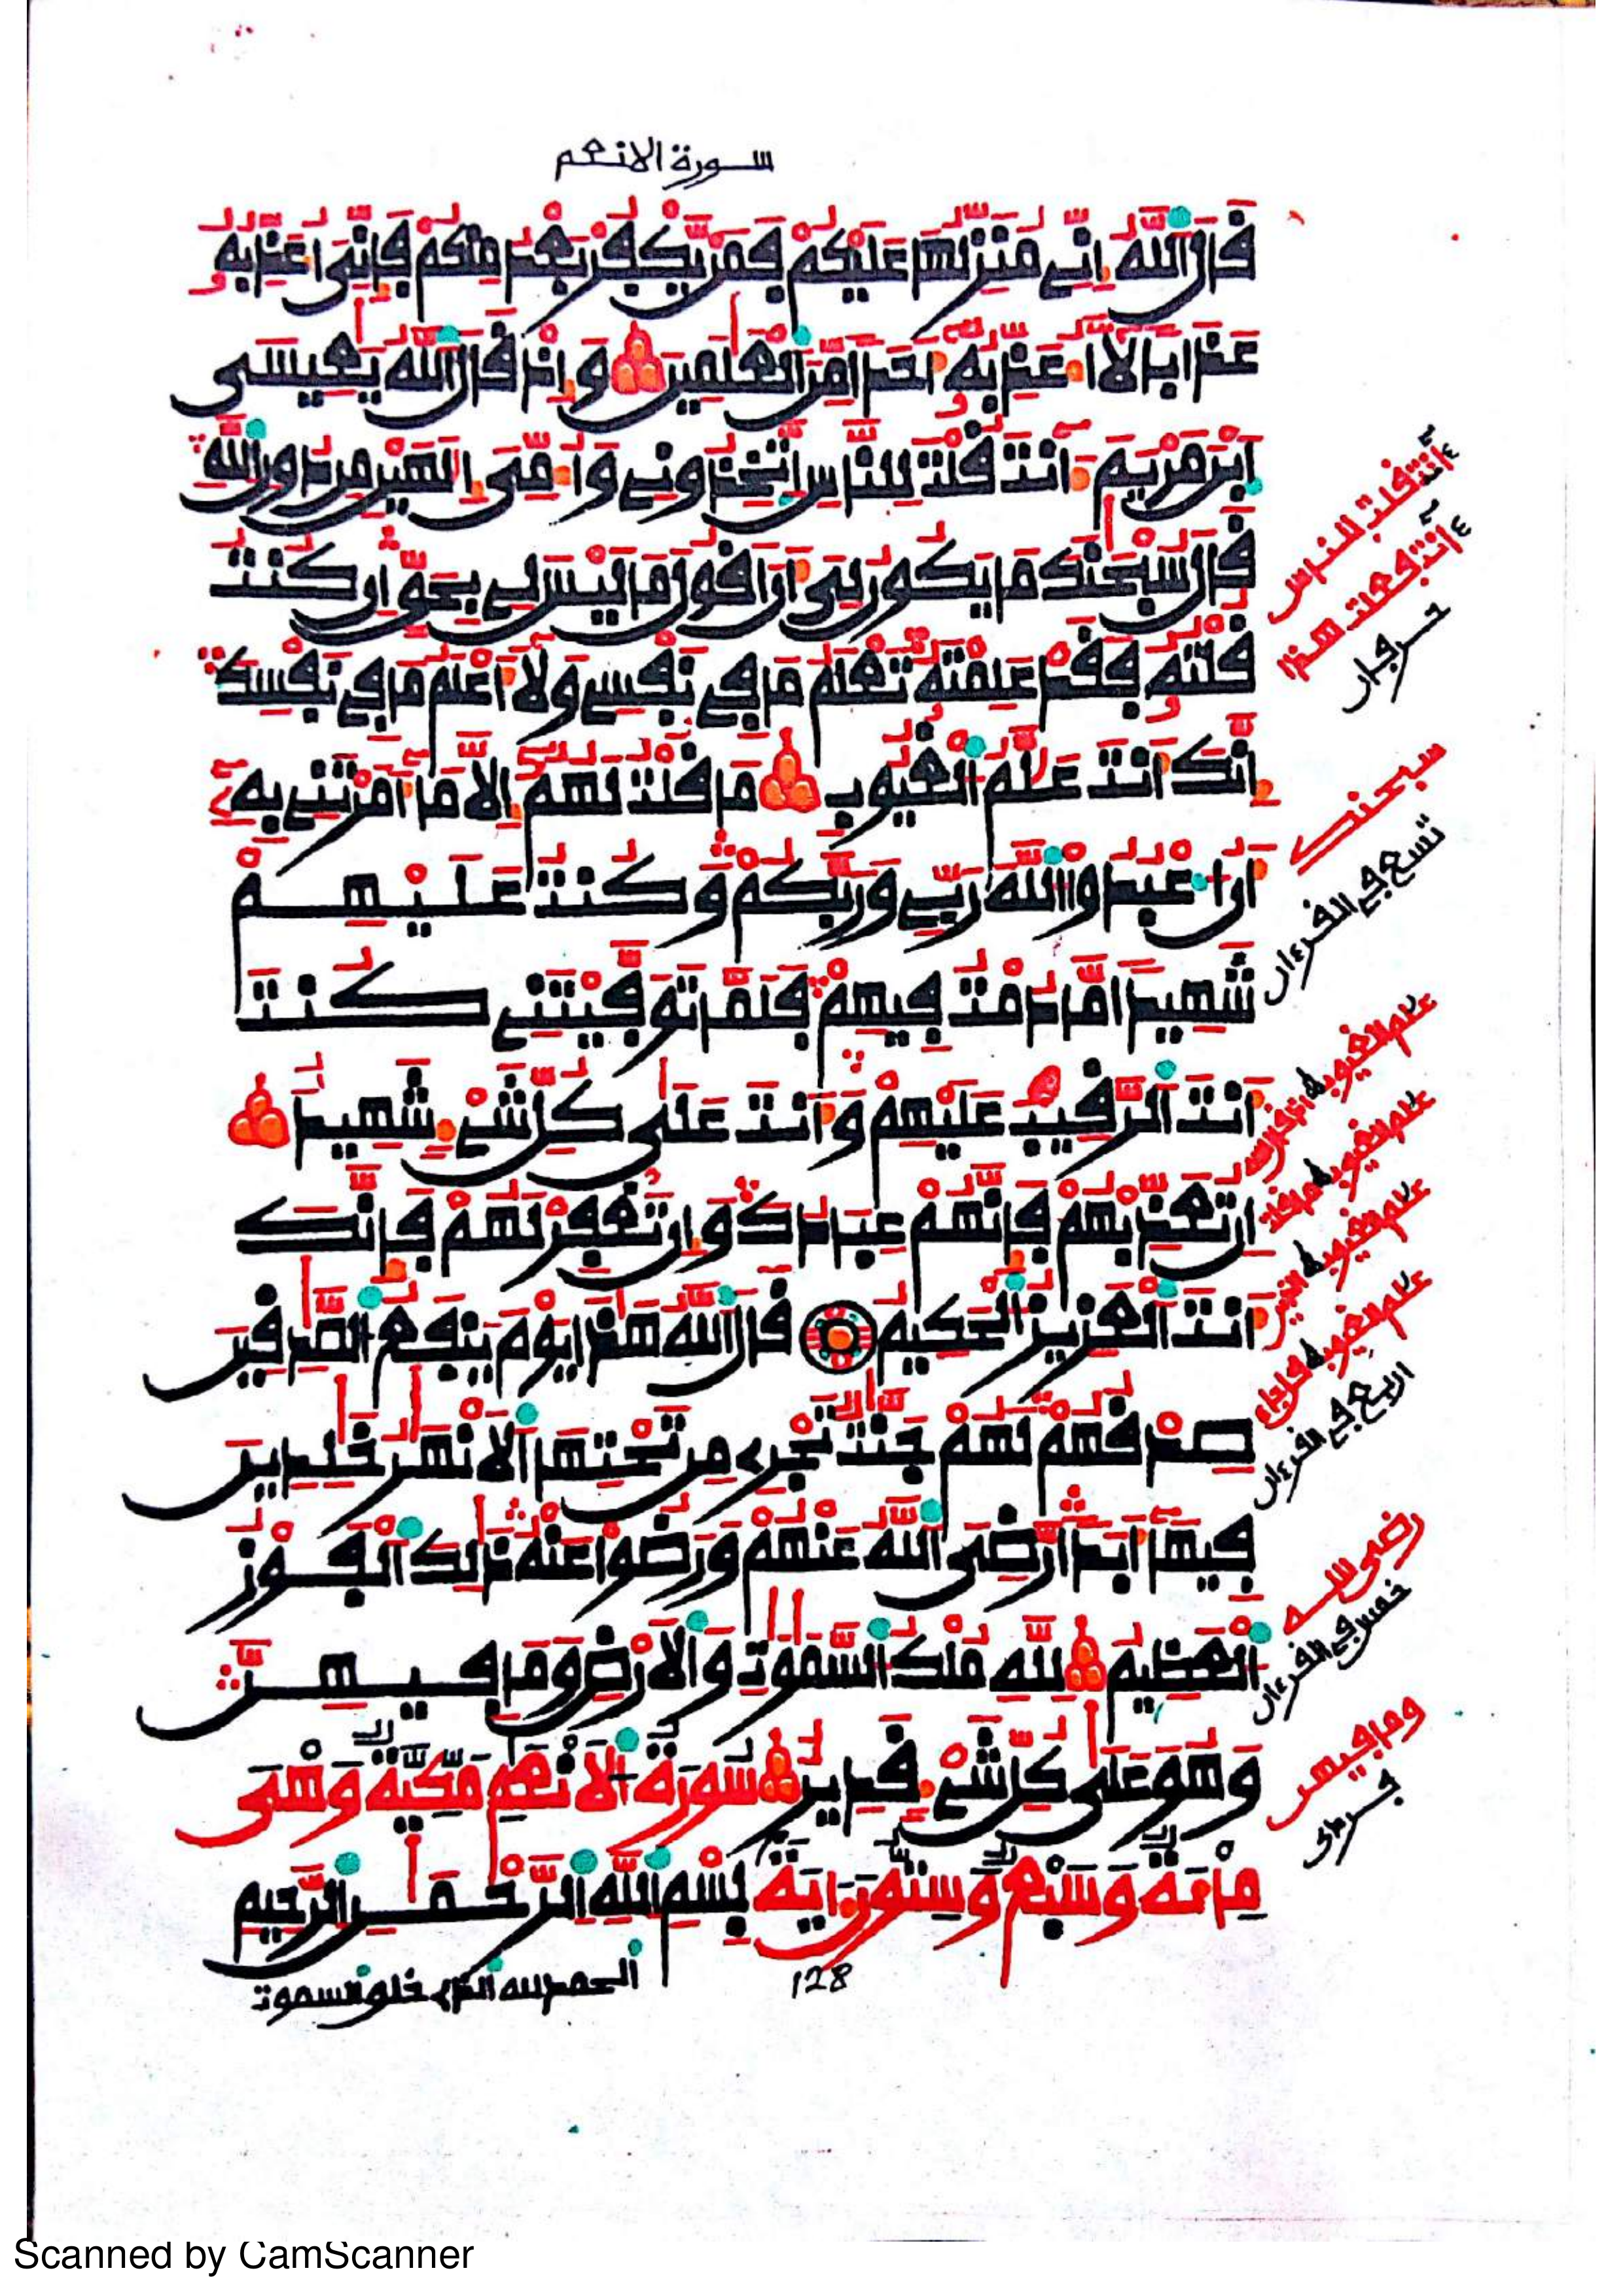 سورة الانعم
قَالَ اَللَّهُ إِنِّے مُنَزِّلُهَا عَلَيْكُمْ فَمَنْ يَّكْفُرْ بَعْدُ مِنكُمْ فَإِنِّىَ أُعَذِّبُهُۥ
عَذَابًا لَّا أُعَذِّبُهُۥ أَحَدًا مِّنَ اَلْعَٰلَمِينَ وَإِذْ قَالَ اَللَّهُ يَٰعِيسَى
اَبْنَ مَرْيَمَ ءَآنتَ قُلْتَ لِلنَّاسِ اِتَّخِذُونِے وَأُمِّىَ إِلَٰهَيْنِ مِن دُونِ اِللَّهِ
قَالَ سُبْحَٰنَكَ مَا يَكُونُ لِىَ أَنَ اَقُولَ مَا لَيْسَ لِے بِحَقٍّ إِن كُنتُ
قُلْتُهُۥ فَقَدْ عَلِمْتَهُۥ تَعْلَمُ مَا فِى نَفْسِے وَلَا أَعْلَمُ مَا فِى نَفْسِكَ
إِنَّكَ أَنتَ عَلَّٰمُ اُلْغُيُوبِ مَا قُلْتُ لَهُمُۥ إِلَّا مَا أَمَرْتَنِے بِهِۦ
أَنُ اُعْبُدُواْ اُللَّهَ رَبِّے وَرَبَّكُمْ وَكُنتُ عَلَيْهِمْ
شَهِيدًا مَّا دُمْتُ فِيهِمْ فَلَمَّا تَوَفَّيْتَنِے كُنتَ
أَنتَ اَلرَّقِيبَ عَلَيْهِمْ وَأَنتَ عَلَىٰ كُلِّ شَےْءٍ شَهِيدًا
إِن تُعَذِّبْهُمْ فَإِنَّهُمْ عِبَادُكَ وَإِن تَغْفِرْ لَهُمْ فَإِنَّكَ
أَنتَ اَلْعَزِيزُ اُلْحَكِيمُ قَالَ اَللَّهُ هَٰذَا يَوْمَ يَنفَعُ اُلصَّٰدِقِينَ
صِدْقُهُمْ لَهُمْ جَنَّٰتٌ تَجْرِے مِن تَحْتِهَا اَلْأَنْهَٰرُ خَٰلِدِينَ
فِيهَا أَبَدًا رَّضِىَ اَللَّهُ عَنْهُمْ وَرَضُواْ عَنْهُ ذَٰلِكَ اَلْفَوْزُ
اُلْعَظِيمُ لِلهِ مُلْكُ اُلسَّمَٰوَٰتِ وَالْأَرْضِ وَمَا فِيهِنَّ
وَهُوَ عَلَىٰ كُلِّ شَےْءٍ قَدِيرٌ سُورَةُ اُلْأَنْعَٰمِ مَكِّيَّةٌ وَهْىَ
مِاْئَةٌ وَسَبْعٌ وَسِتُّونَ ءَايَةً بِسْمِ اِللَّهِ اِلرَّحْمَٰنِ اِلرَّحِيمِ
128
الحمد لله الذے خلق السموت
ءانت قلت للناس
ءانت فعلت هذا
حرفان
سبحنك
تسع فى القرءان
علم الغيوب
علم الغيوب ما قلت
علم الغيوب
علم الغيوب
اربع فى القرءان
رضى الله
خمس فى القرءان
وما فيهن
Scanned by CamScanner